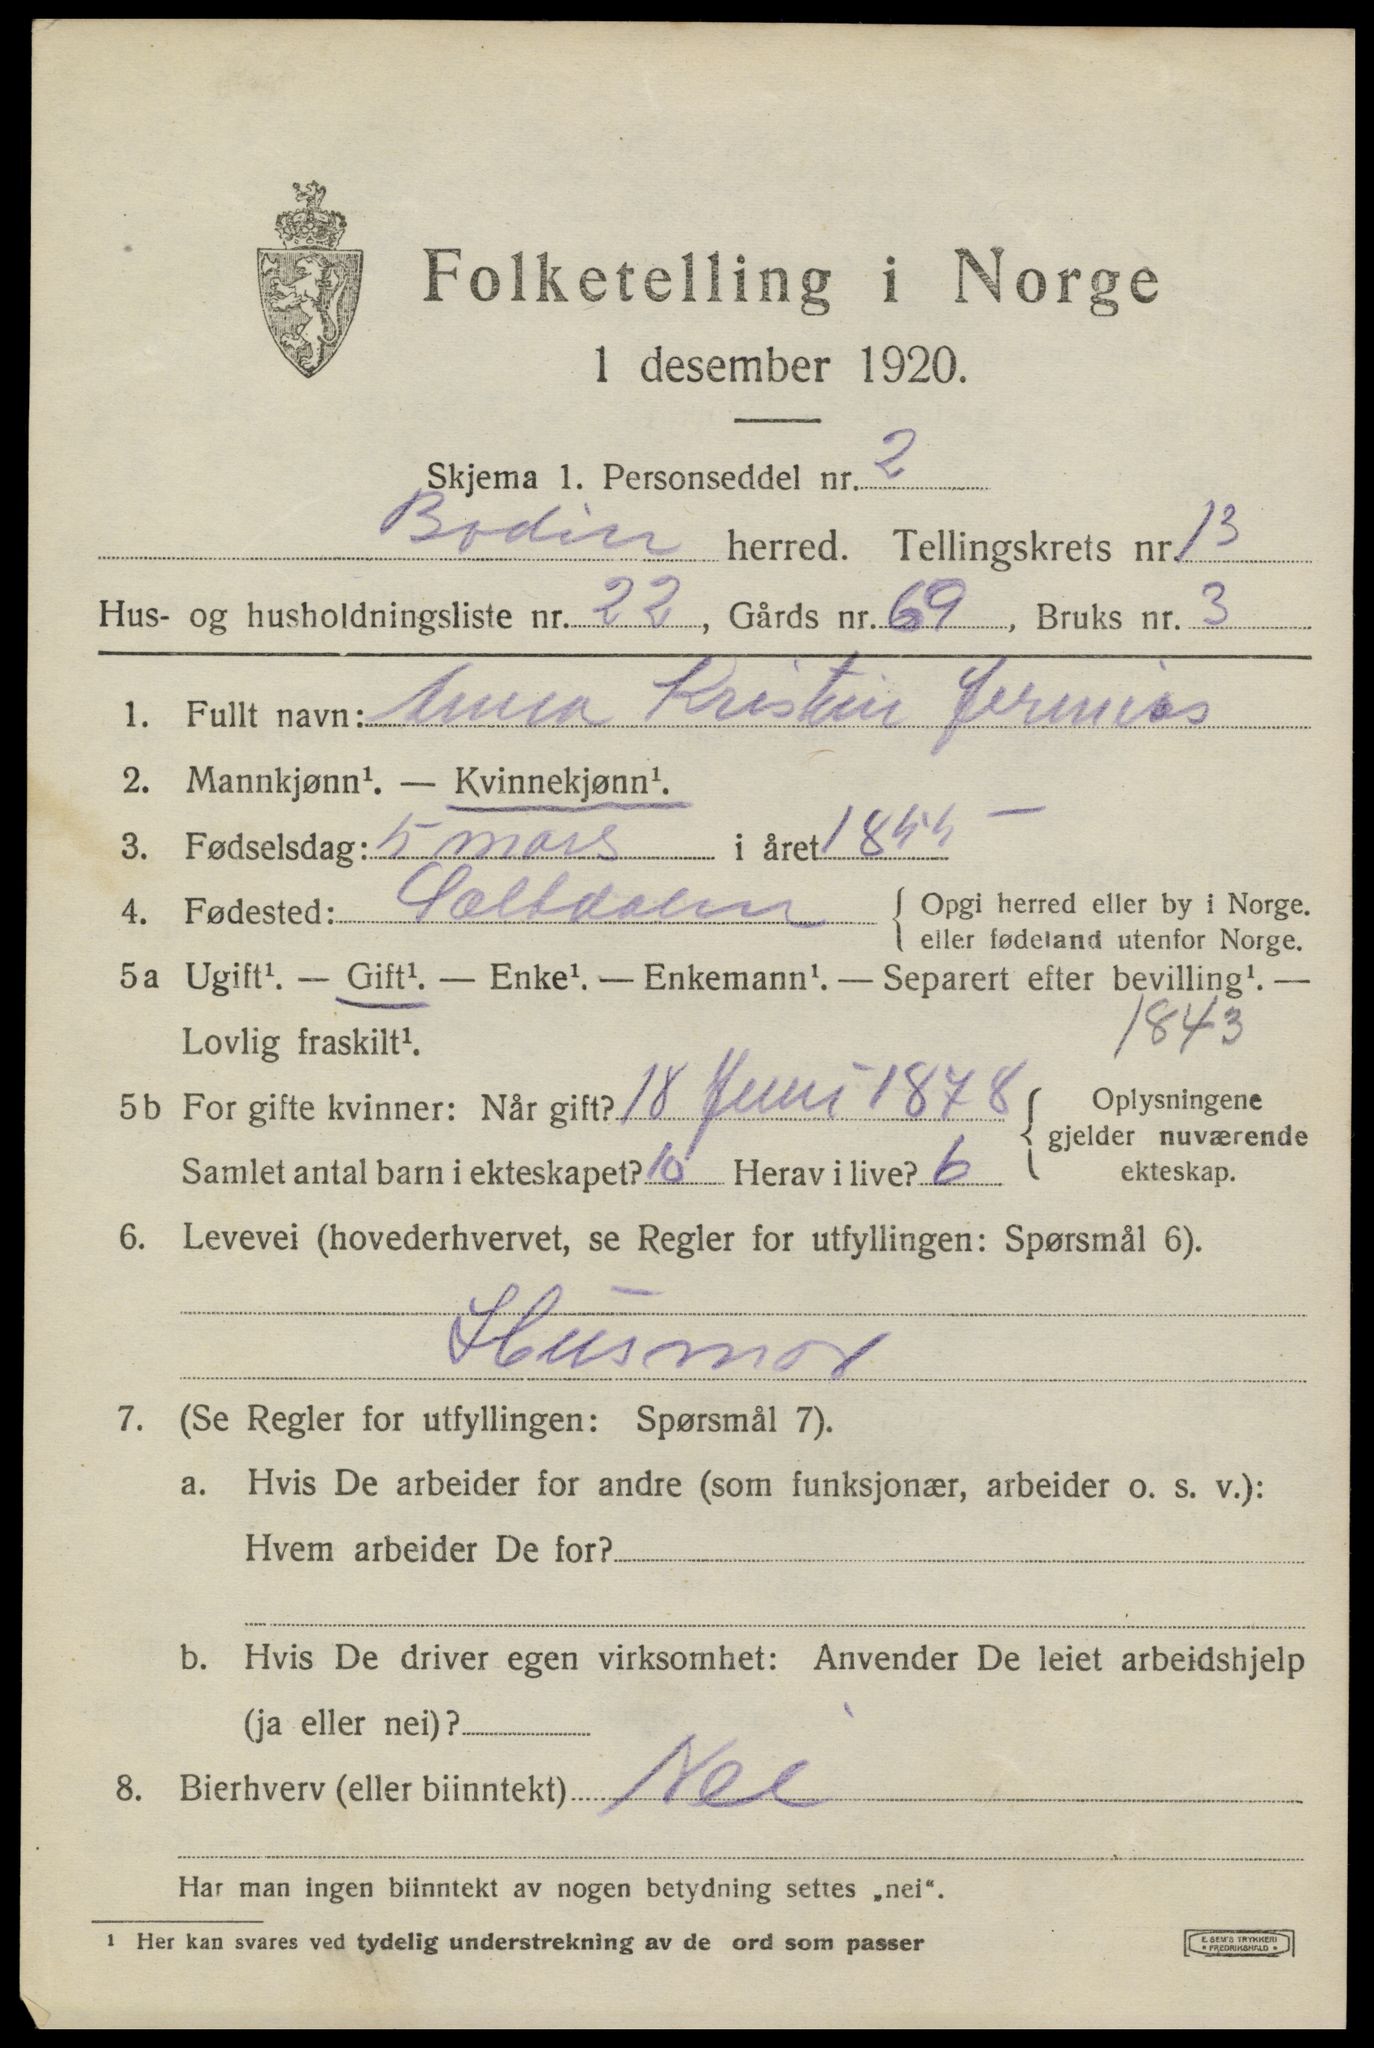 Folketelling i Norge
1 desember 1920.
Skjema 1. Personseddel nr. 2
Bodin herred. Tellingskrets nr. 13
Hus- og husholdningsliste nr. 22, Gårds nr. 69, Bruks nr. 3
1. Fullt navn: Anna Kristin Jermias
2. Mannkjønn¹. — Kvinnekjønn¹.
3. Fødselsdag: 5 mars i året 1855 —
4. Fødested: Saltdalen { Opgi herred eller by i Norge.
eller fødeland utenfor Norge.
5a Ugift¹. — Gift¹. — Enke¹. — Enkemann¹. — Separert efter bevilling¹. —
Lovlig fraskilt¹. 1843
5b For gifte kvinner: Når gift? 18 Juni 1878 { Oplysningene
gjelder nuværende
Samlet antal barn i ekteskapet? 10 Herav i live? 6 ekteskap.
6. Levevei (hovederhvervet, se Regler for utfyllingen: Spørsmål 6).
Husmor
7. (Se Regler for utfyllingen: Spørsmål 7).
a. Hvis De arbeider for andre (som funksjonær, arbeider o. s. v.):
Hvem arbeider De for?
b. Hvis De driver egen virksomhet: Anvender De leiet arbeidshjelp
(ja eller nei)?
8. Bierhverv (eller biinntekt) Nei
Har man ingen biinntekt av nogen betydning settes „nei“.
¹ Her kan svares ved tydelig understrekning av de ord som passer
E. SEM'S TRYKKERI
* FREDRIKSHALD *